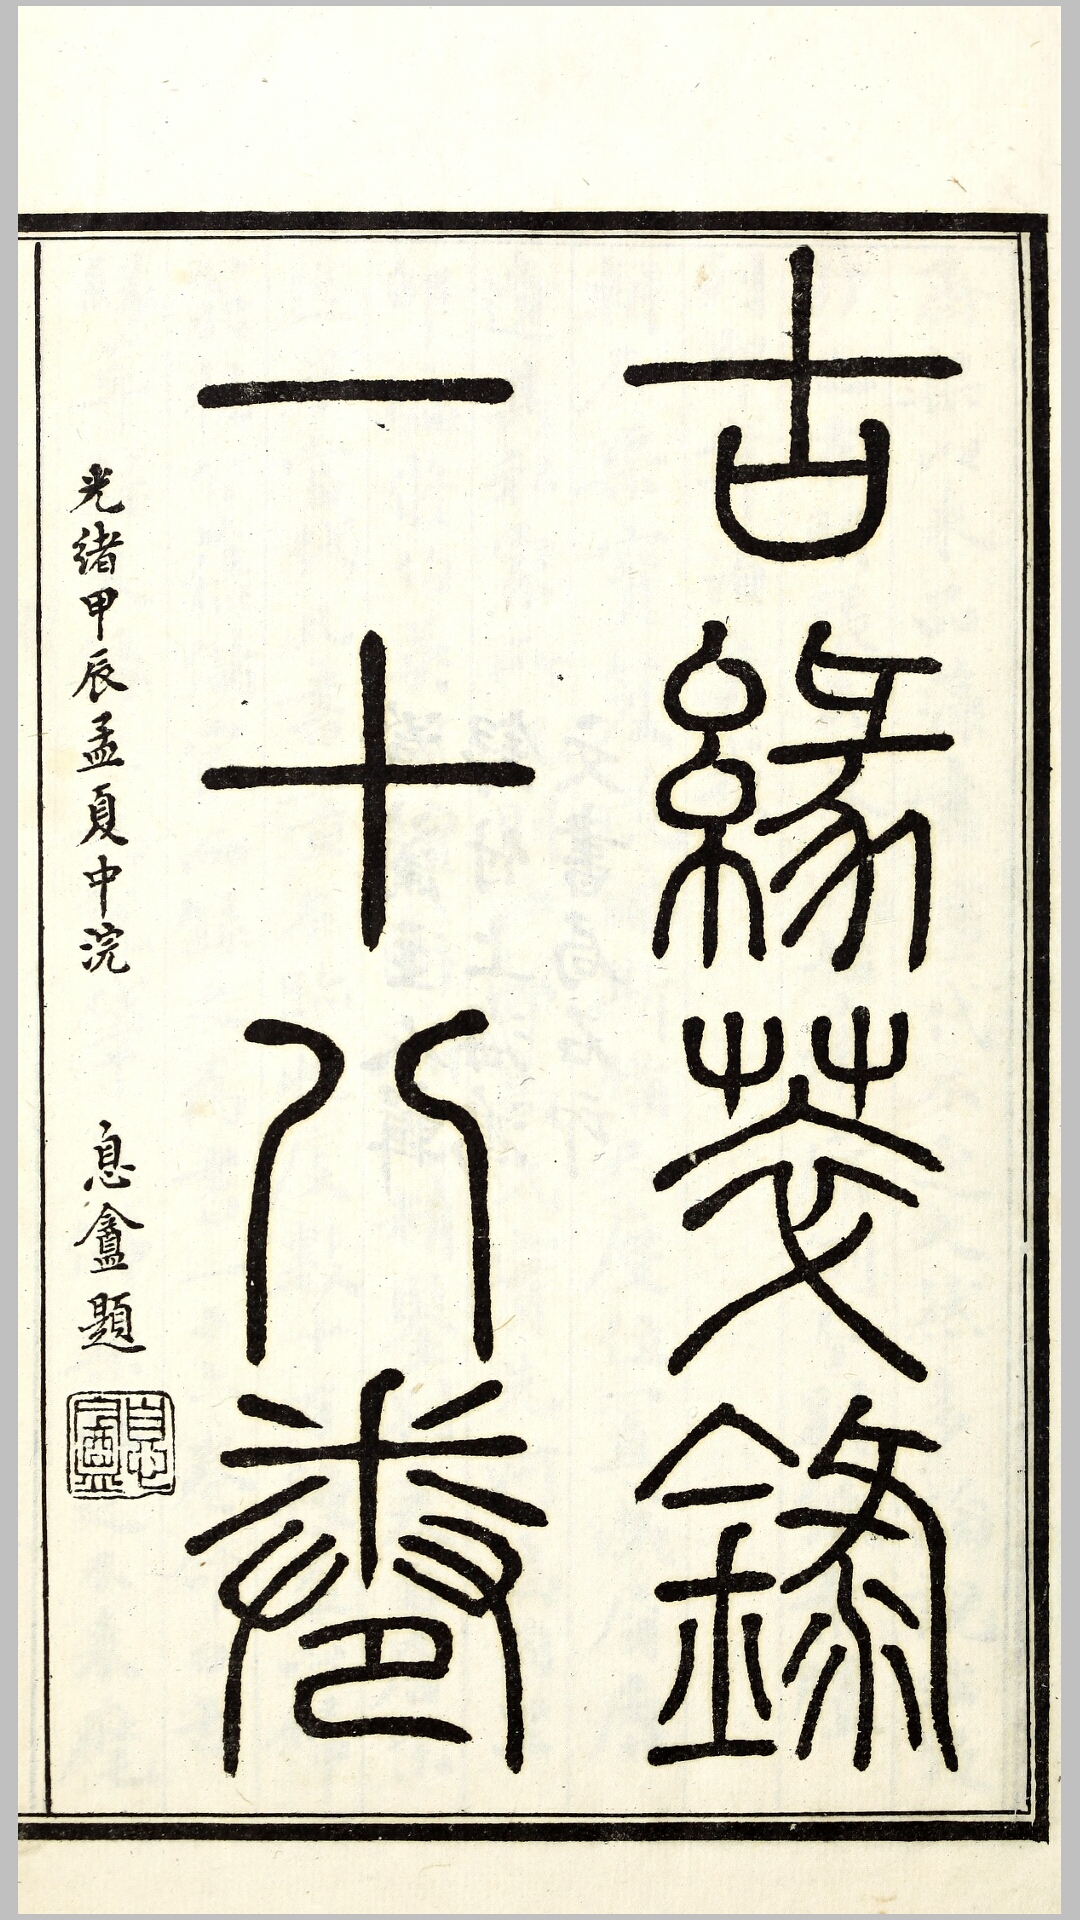 古緣萃錄
一十八卷
光緒甲辰孟夏中浣　息盦題
息盦